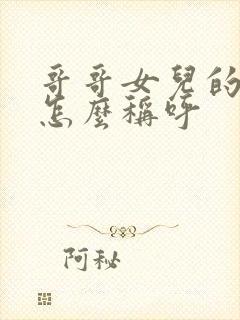 哥哥女兒的
怎麼稱呼
阿秘